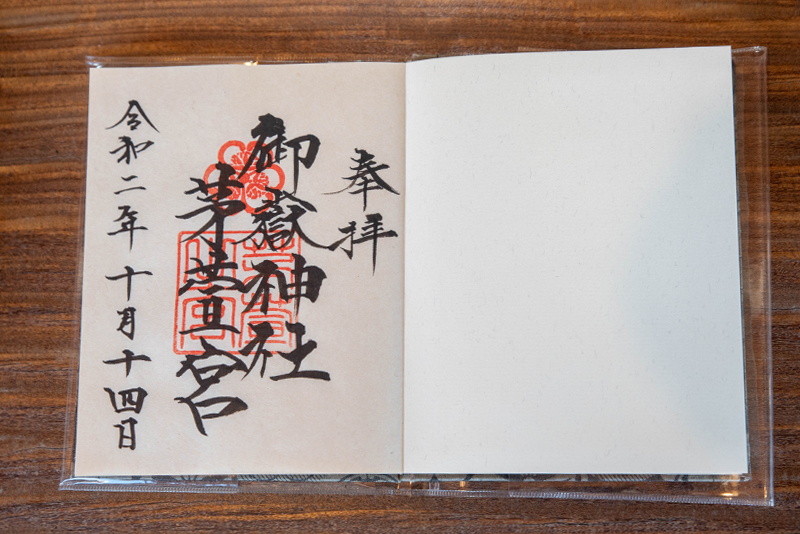 奉拝
御嶽神社
茅萱宮
令和二年十月十四日